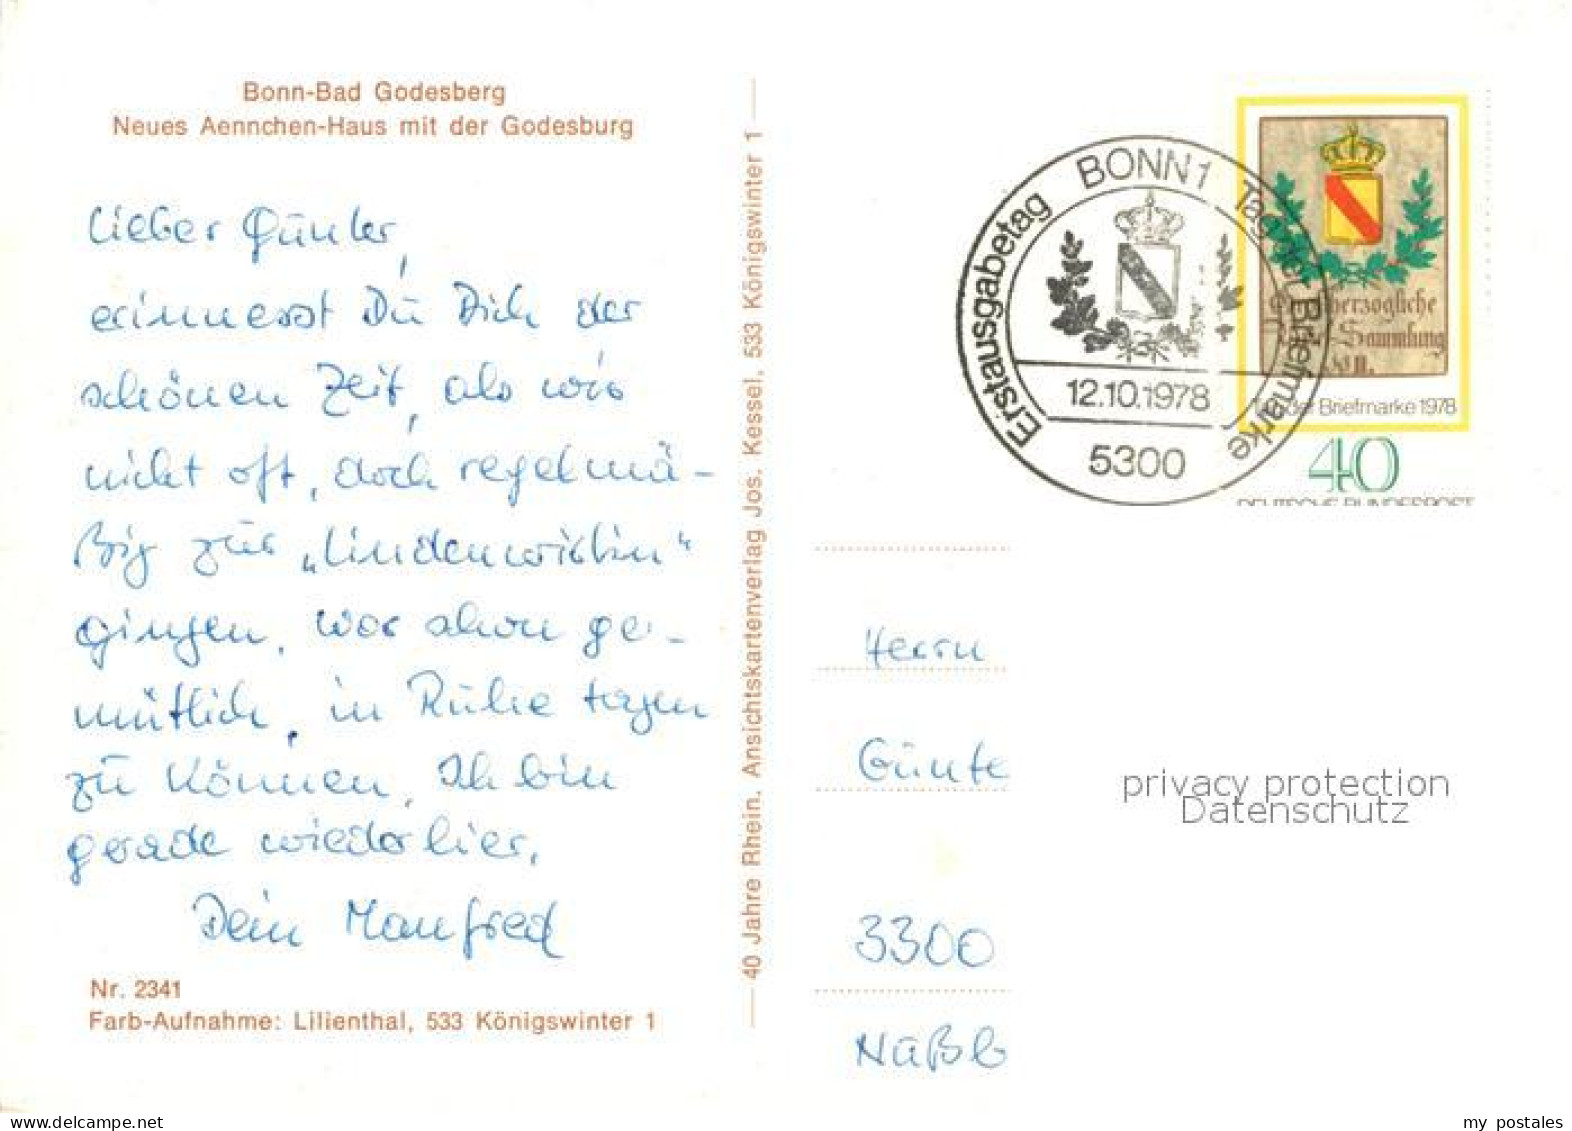 Bonn-Bad Godesberg
Neues Aennchen-Haus mit der Godesburg
Lieber Günter,
erinnerst Du Dich der
schönen Zeit, als wir
nicht oft, doch regelmä-
ßig zur „Lindenwirtin“
gingen. War schon ge-
mütlich, in Ruhe tagen
zu können. Ich bin
gerade wieder hier.
Dein Manfred
Nr. 2341
Farb-Aufnahme: Lilienthal, 533 Königswinter 1
40 Jahre Rhein. Ansichtskartenverlag Jos. Kessel, 533 Königswinter 1
BONN 1
Erstausgabetag
Tag der Briefmarke
12.10.1978
5300
herzogliche
Sammlung
der Briefmarke 1978
40
DEUTSCHE BUNDESPOST
Herrn
Günte
privacy protection
Datenschutz
3300
Nußb
my postales